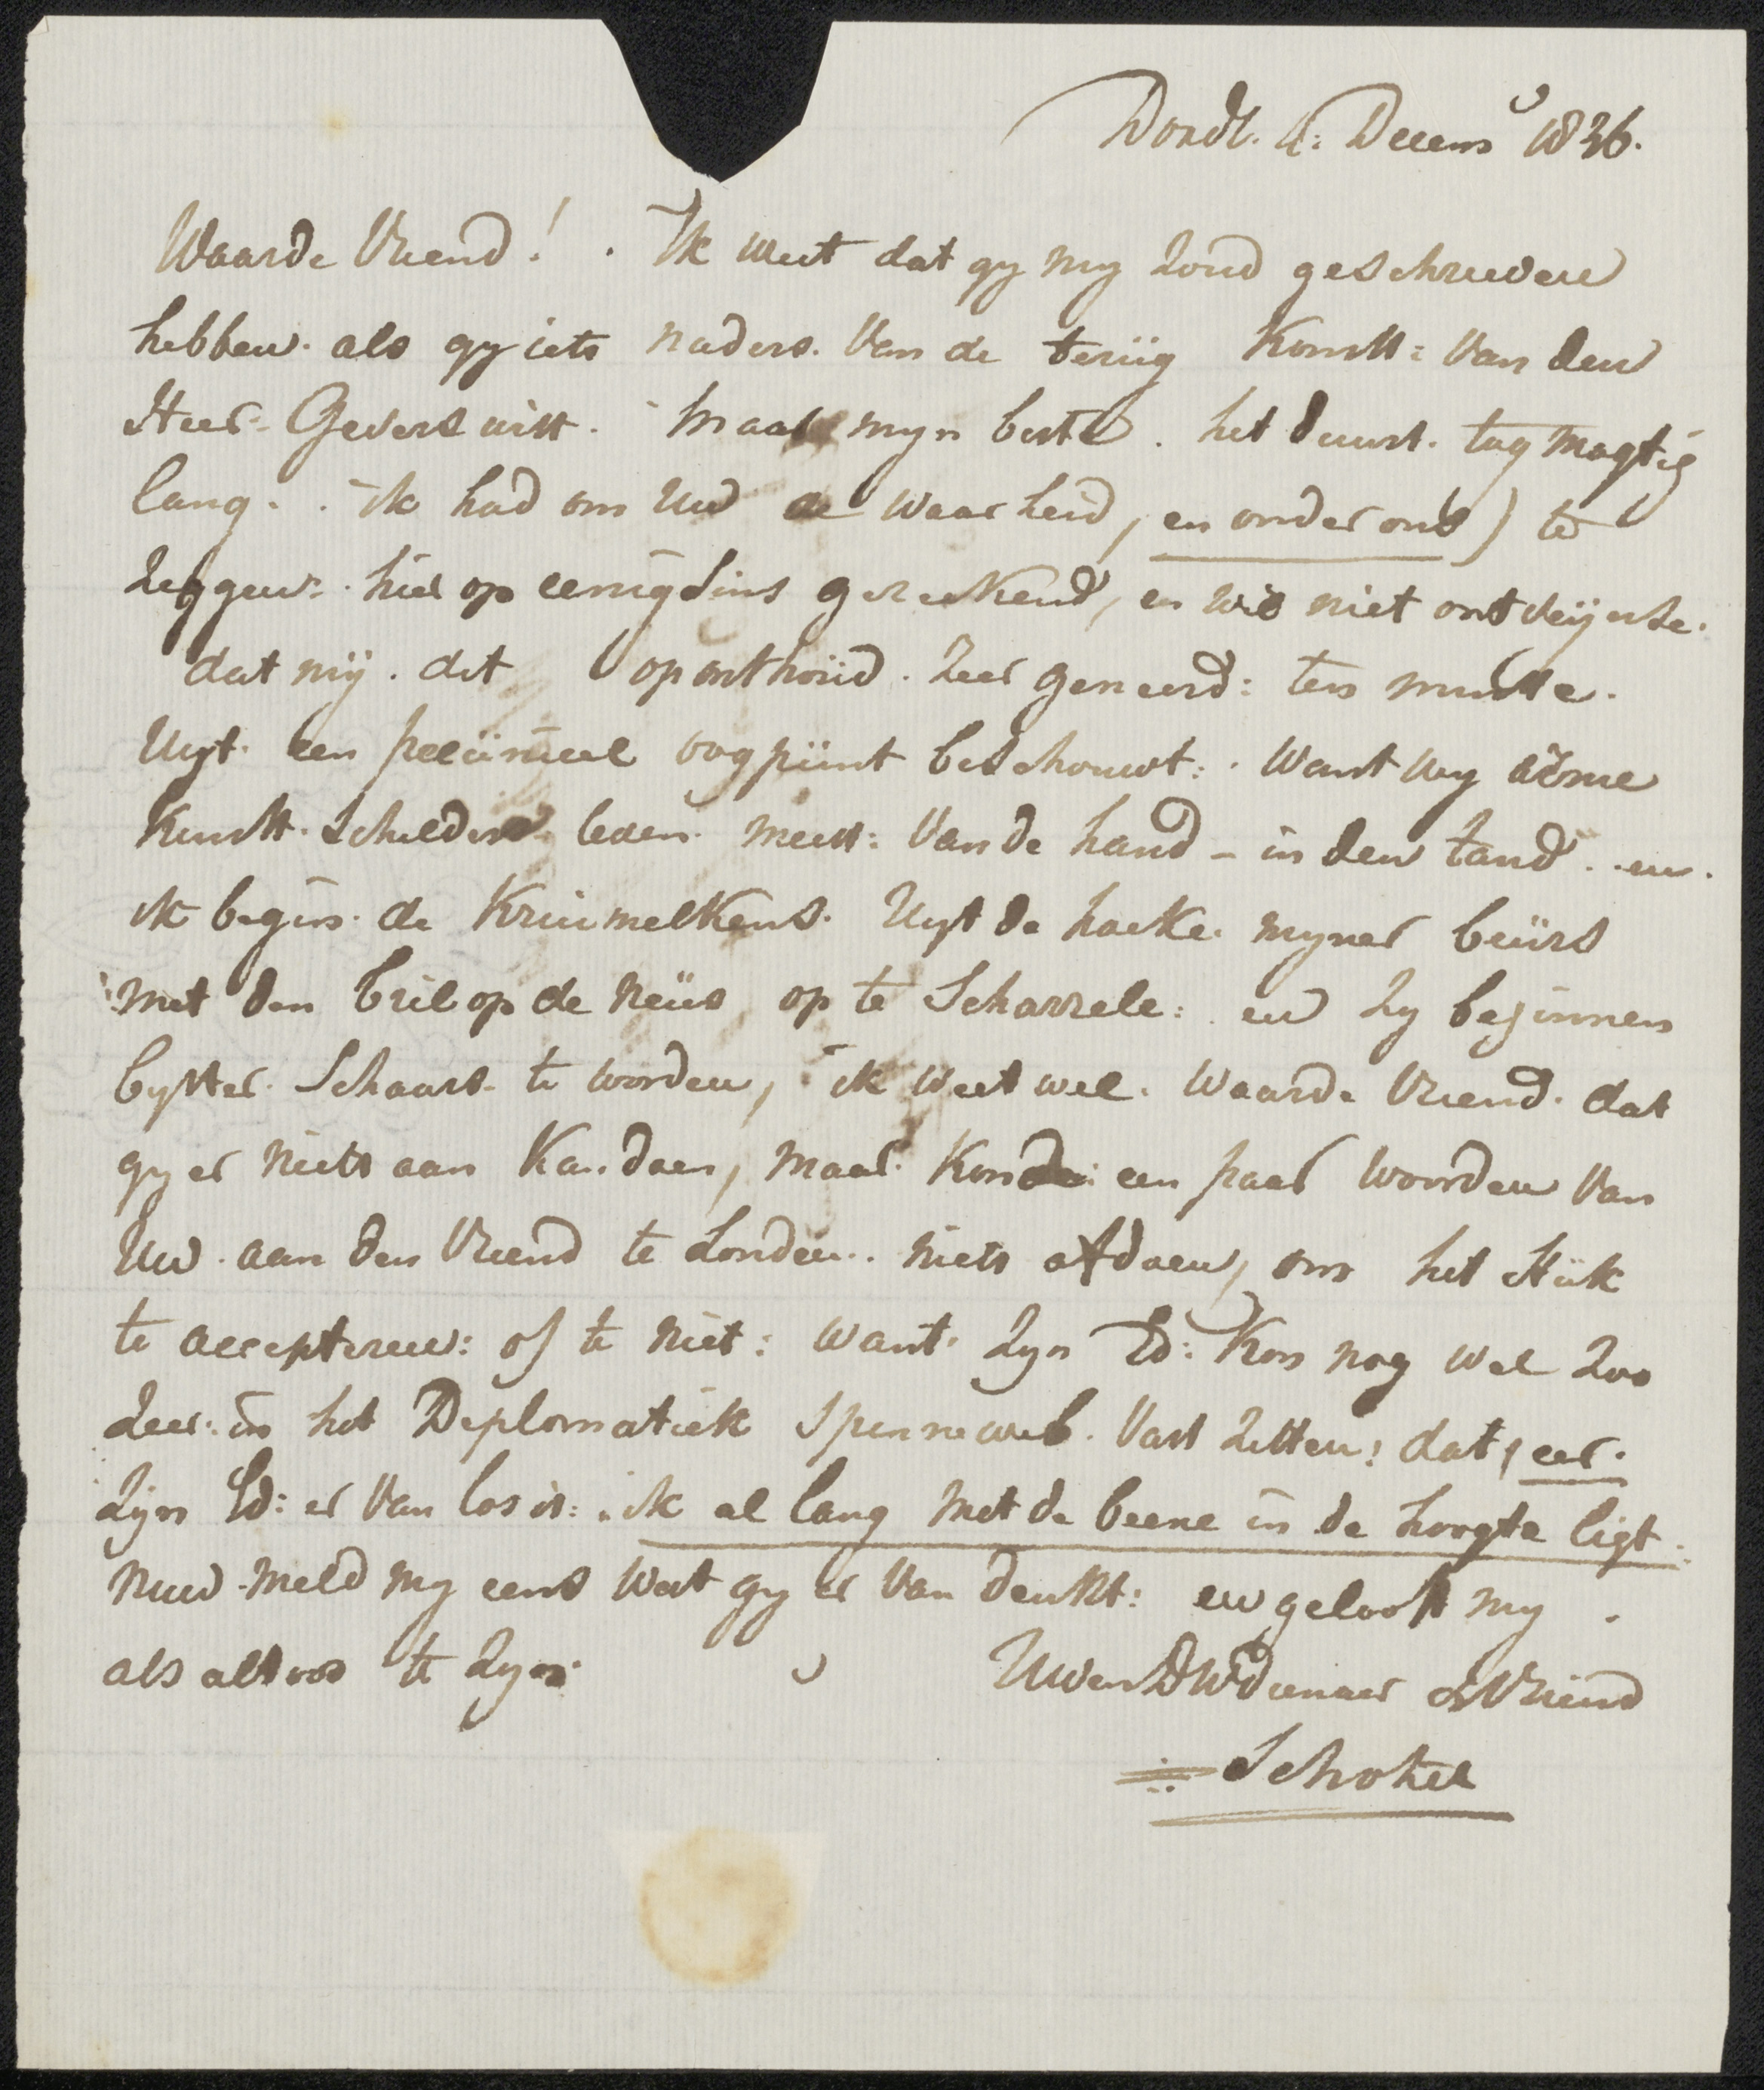 Dordt. 4: Decemb 1836.
Waarde Vriend! . Ik weet dat gy my zoud geschreeven
hebben. als gy iets naders. Van de terüg Komst: Van den
Heer. Gevers wist. maar myn beste. het duurt. tog magtig
lang. . ik had om Uw de waarheid, en onder ons) te
zeggen: hier op eenigsins gereekend, en wil niet ontveijnse.
dat mij. dit oponthoüd. zeer geneerd: ten minste.
Uyt. een pecünieel oogpünt beschouwt: . Want wy arme
Kunst. Schilders leven. meest: Van de hand - in den tand. en.
ik begin. de Kruimelkens. Uyt de hoeke. myner beürs
met den bril op de neüs op te Scharrele: en zy beginnen
byster. Schaars te worden, ik weet wel. Waarde Vriend. dat
gy er niets aan Kan doen, maar. Konde een paar woorden Van
Uw. aan den Vriend te Londen.. niets afdoen, om het stük
te accepteren: of te niet: want. zyn Ed: Kon nog wel zoo
zeer: in het Deplomatiek Spinneweb. Vast zitten: dat, eer.
zijn Ed: er Van los is: . ik al lang met de beene in de hoogte ligt.
nuw. meld my eens wat gy er Van denkt: en gelooft my .
als altoos te zyn.
Uwen DWDienaar & Vriend
Schotel